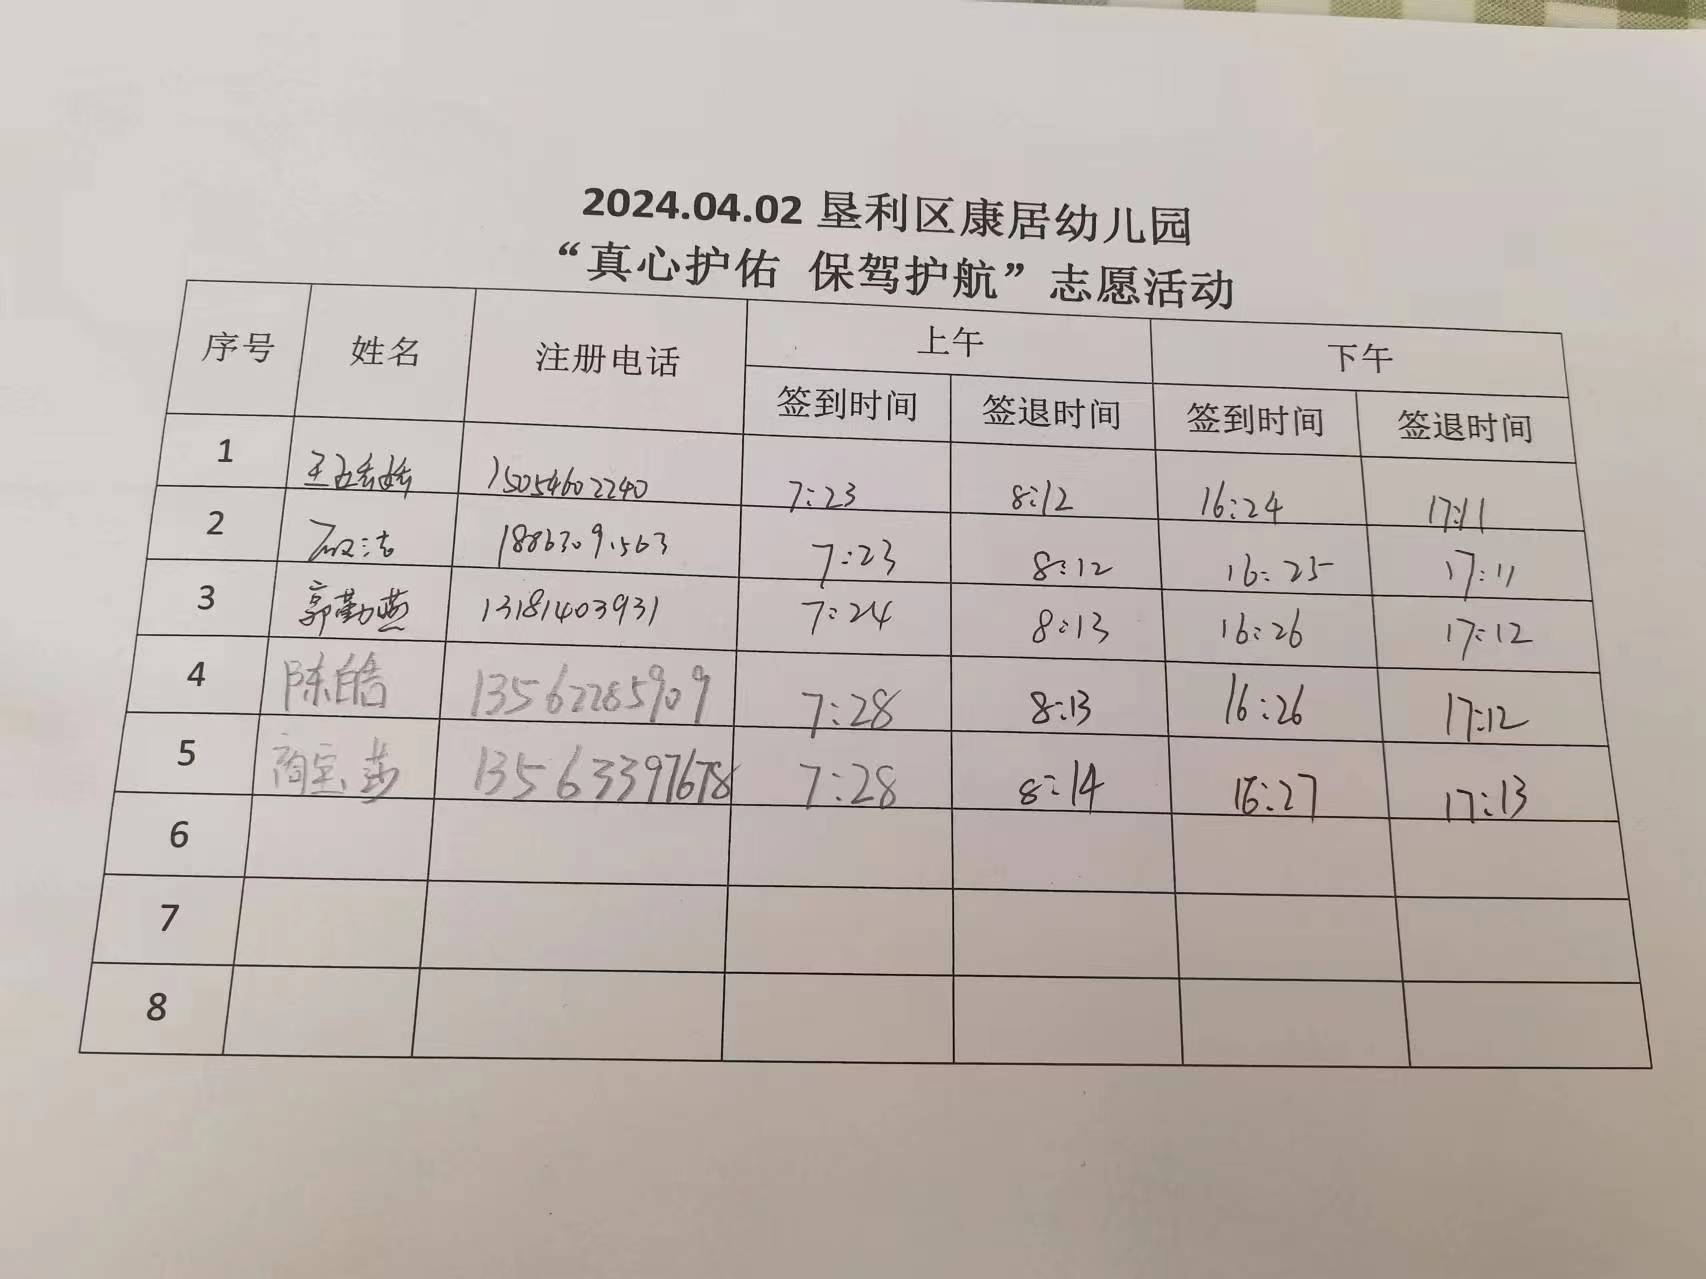 2024.04.02 垦利区康居幼儿园
“真心护佑 保驾护航”志愿活动
序号 姓名 注册电话 上午 下午
签到时间 签退时间 签到时间 签退时间
1 15054602240 7:23 8:12 16:24 17:11
2 7:23 8:12 16:25 17:11
3 郭勤燕 13181403931 7:24 8:13 16:26 17:12
4 陈皓 13562285909 7:28 8:13 16:26 17:12
5 13563397678 7:28 8:14 16:27 17:13
6
7
8